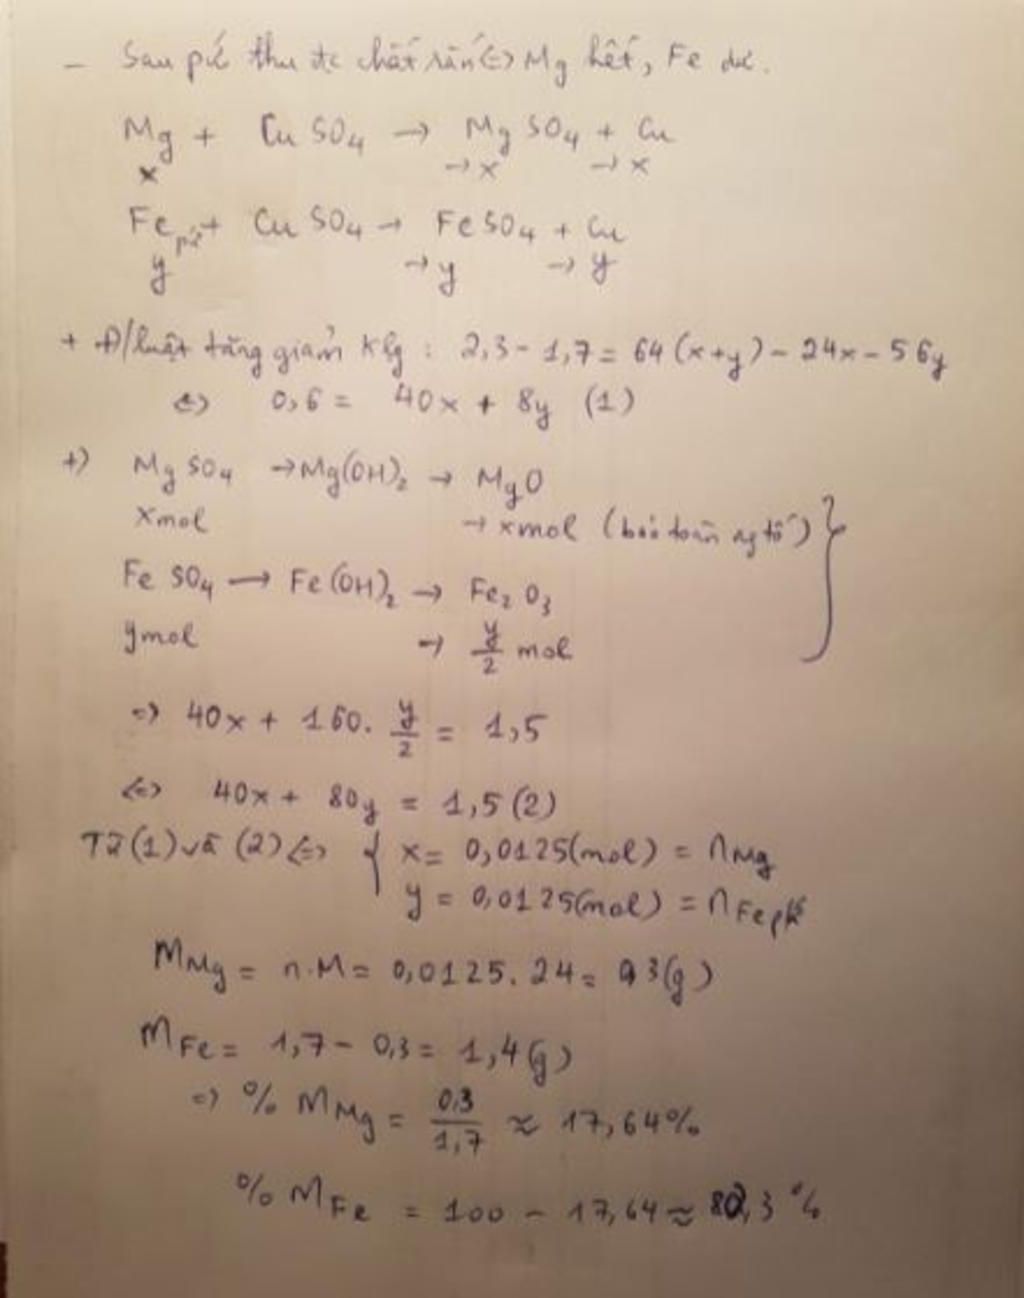 - Sau pứ thu đc chất rắn (=) Mg hết, Fe dư.
Mg + CuSO₄ → MgSO₄ + Cu
x → x → x
Fe pứ + CuSO₄ → FeSO₄ + Cu
y → y → y
+ Đ/luật tăng giảm klg : 2,3 - 1,7 = 64(x+y) - 24x - 56y
<=> 0,6 = 40x + 8y (1)
+) MgSO₄ → Mg(OH)₂ → MgO
xmol → xmol (bảo toàn ng tố)
FeSO₄ → Fe(OH)₂ → Fe₂O₃
ymol → y/2 mol
=> 40x + 160. y/2 = 1,5
<=> 40x + 80y = 1,5 (2)
Từ (1) và (2) <=> { x = 0,0125(mol) = nMg
y = 0,0125(mol) = nFe pứ
mMg = n.M = 0,0125. 24 = 0,3(g)
mFe = 1,7 - 0,3 = 1,4(g)
=> % mMg = 0,3/1,7 ≈ 17,64%
% mFe = 100 - 17,64 ≈ 82,3 %